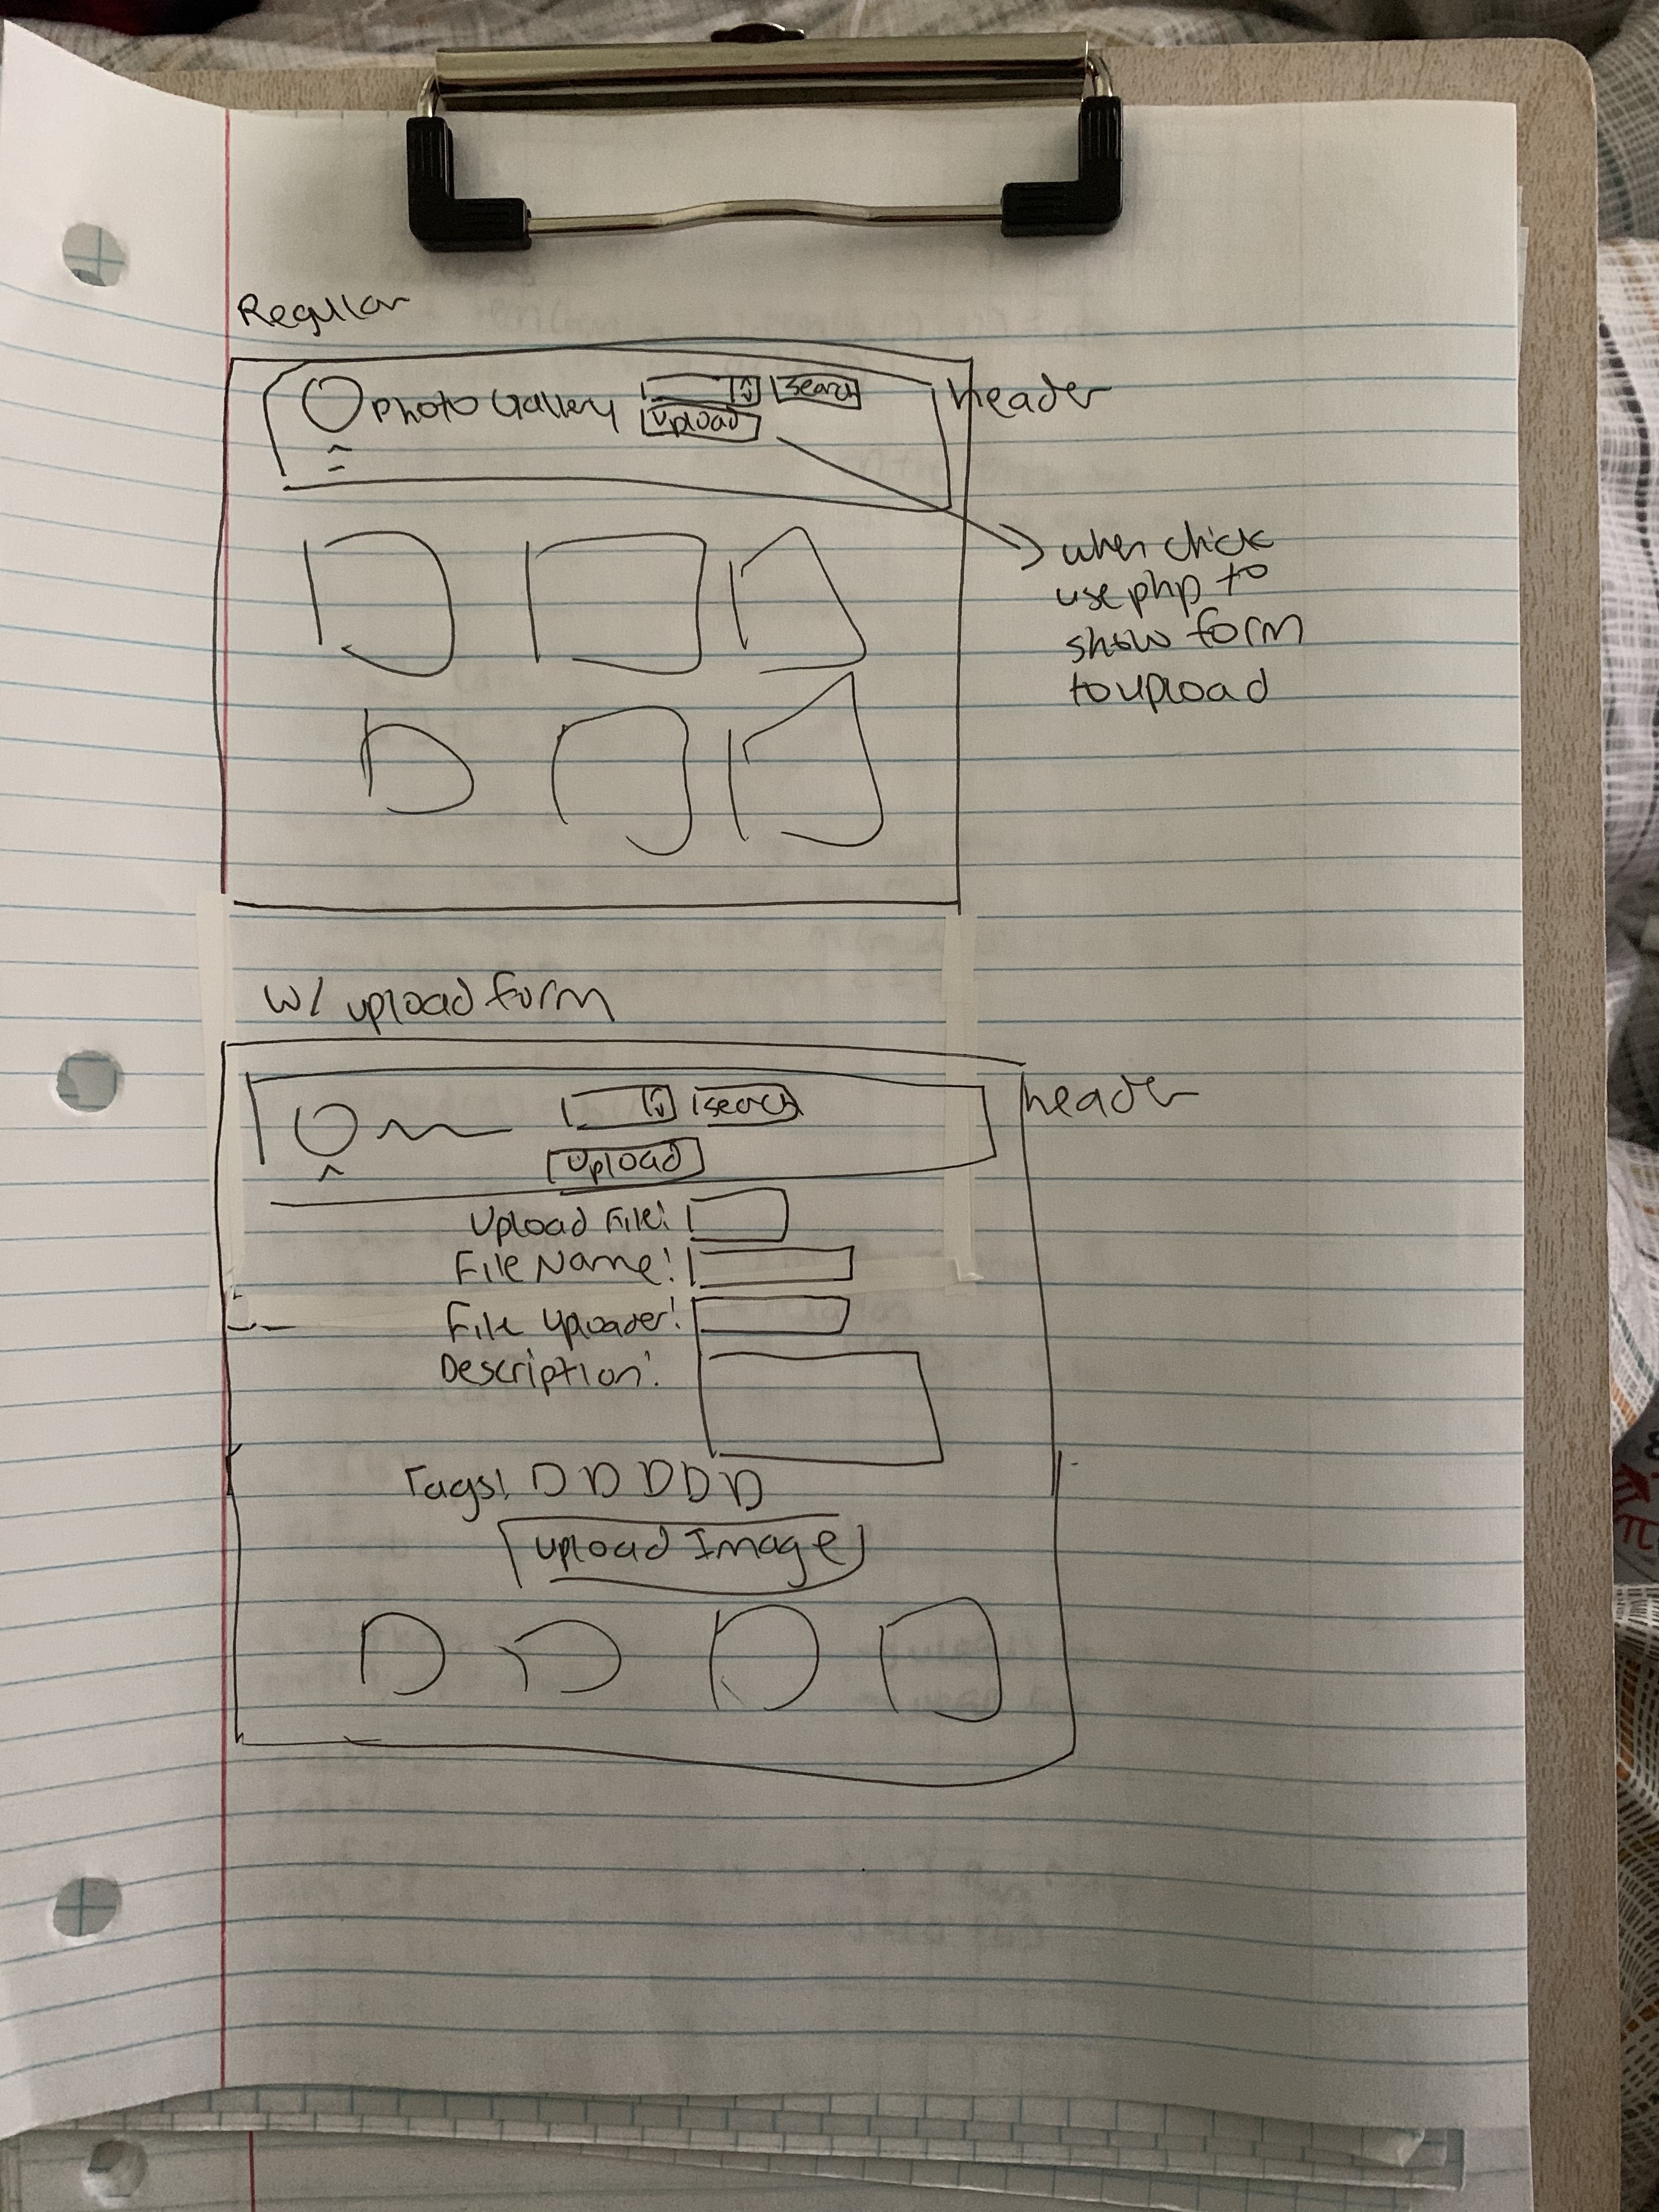 Regular
Photo Gallery
Search
Upload
header
when click
use php to
show form
to upload
w/ upload form
search
Upload
header
Upload File:
File Name:
File Uploader:
Description:
Tags:
Upload Image